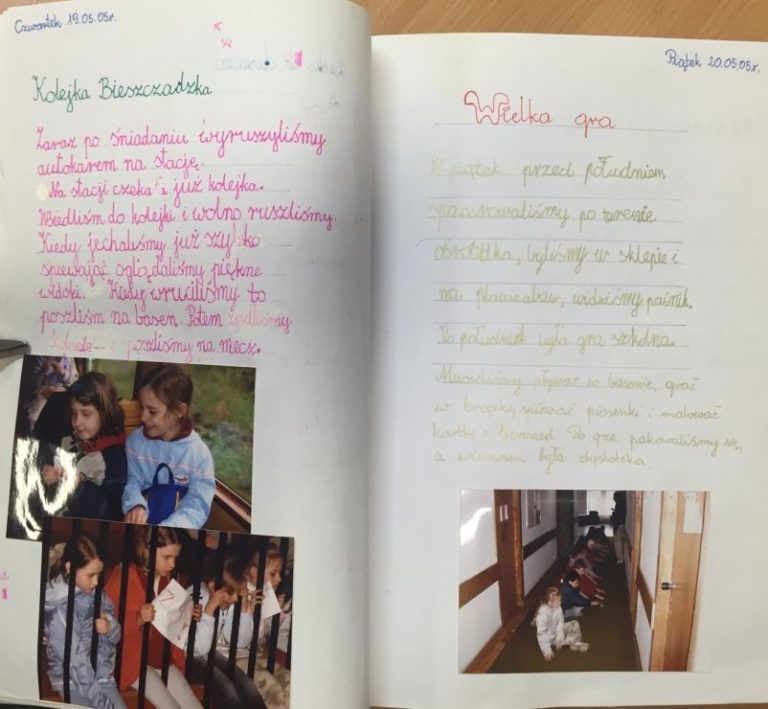 Czwartek 19.05.05r.
Kolejka Bieszczadzka
Zaraz po śniadaniu wyruszyliśmy
autokarem na stację.
Na stacji czekała już kolejka.
Wsiedliśm do kolejki i wolno ruszliśmy.
Kiedy jechaliśmy już szybko
śpiewając oglądaliśmy piękne
widoki. Kiedy wruciliśmy to
poszliśm na basen. Potem zjedliśmy
i poszliśmy na mecz.
Piątek 20.05.05r.
Wielka gra
W piątek przed południem
spacerowaliśmy po terenie
ośrodka, byliśmy w sklepie i
na placu zabaw, widziśmy paśnik.
Po południu była gra szkolna.
Musieliśmy pływać w basenie, grać
w krążki, śpiewać piosenki i malować
kartkę z Bieszczad. Po grze pakowaliśmy się,
a wieczorem była dyskoteka.